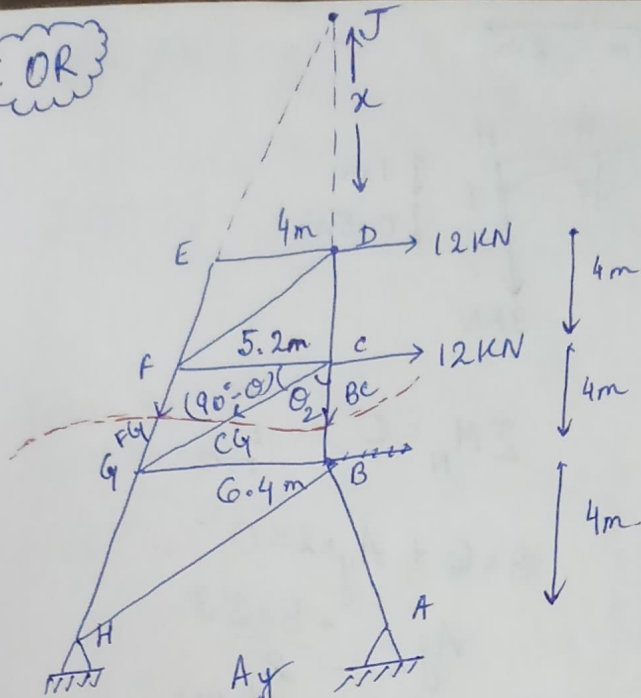 OR
J
x
E
4m
D
12KN
4m
F
5.2m
C
12KN
(90°-θ)
θ2
BC
4m
FG
CG
G
6.4m
B
4m
H
A
Ay